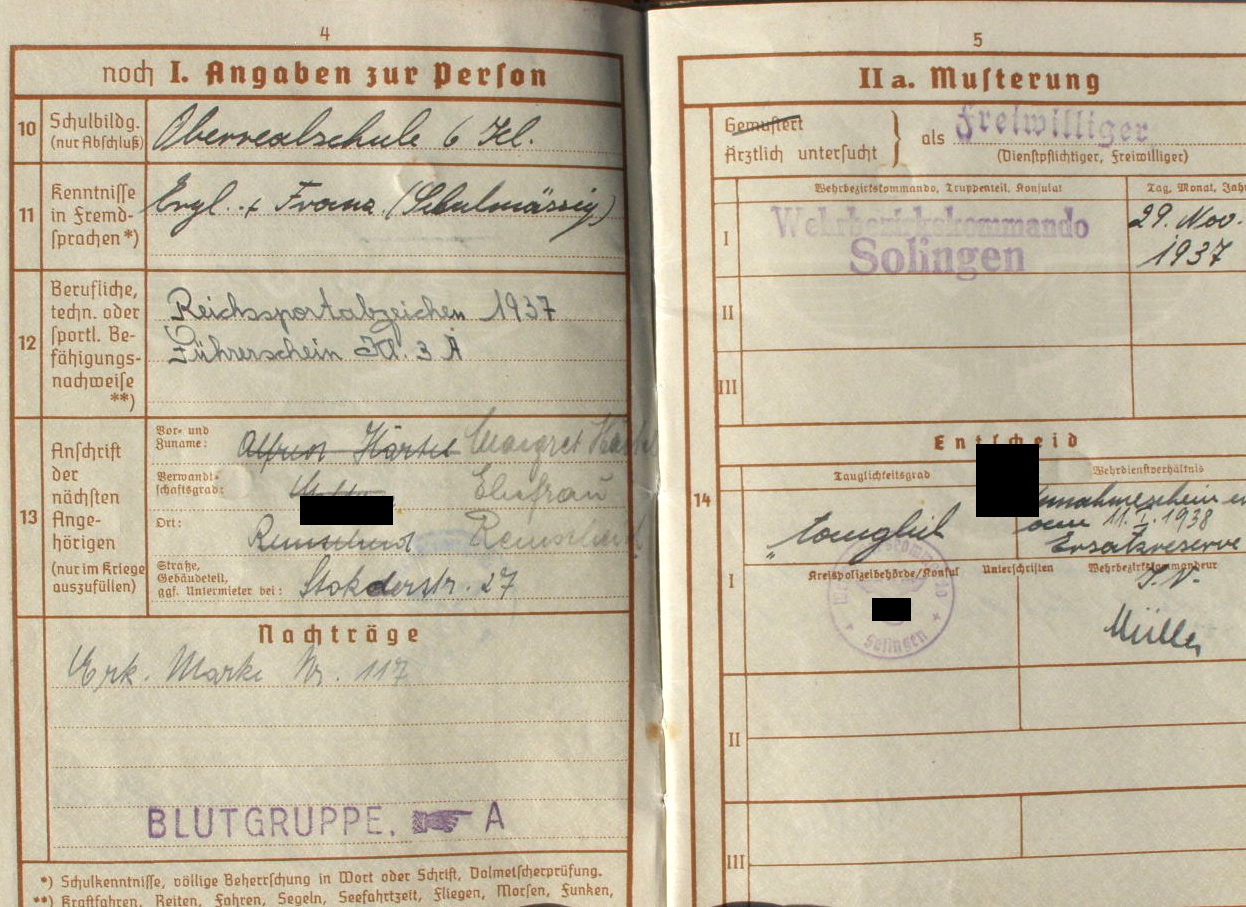 4
noch I. Angaben zur Person
10
Schulbildg.
(nur Abschluß)
Oberrealschule 6 Kl.
11
Kenntnisse
in Fremd-
sprachen*)
Engl. + Franz. (Schulmässig)
12
Berufliche,
techn. oder
sportl. Be-
fähigungs-
nachweise
**)
Reichssportabzeichen 1937
Führerschein Kl. 3 A
13
Anschrift
der
nächsten
Ange-
hörigen
(nur im Kriege
auszufüllen)
Vor- und
Zuname:
Alfred Härtel Margret
Verwandt-
schaftsgrad:
Ehefrau
Ort:
Remscheid Remscheid
Straße,
Gebäudeteil,
ggf. Untermieter bei:
Stokderstr. 27
Nachträge
Erk. Marke Nr. 117
BLUTGRUPPE. A
*) Schulkenntnisse, völlige Beherrschung in Wort oder Schrift, Dolmetscherprüfung.
**) Kraftfahren, Reiten, Fahren, Segeln, Seefahrtzeit, Fliegen, Morsen, Funken,
5
II a. Musterung
Gemustert
Ärztlich untersucht
als Freiwilliger
(Dienstpflichtiger, Freiwilliger)
Wehrbezirkskommando, Truppenteil, Konsulat
Tag, Monat, Jahr
I
Wehrbezirkskommando
Solingen
29. Nov.
1937
II
III
14
Entscheid
Tauglichkeitsgrad
Wehrdienstverhältnis
"tauglich
nnahmeschein
vom 11. I. 1938
Ersatzreserve
I
Kreispolizeibehörde/Konsul
Unterschriften
Wehrbezirkskommandeur
Solingen
Müller
II
III